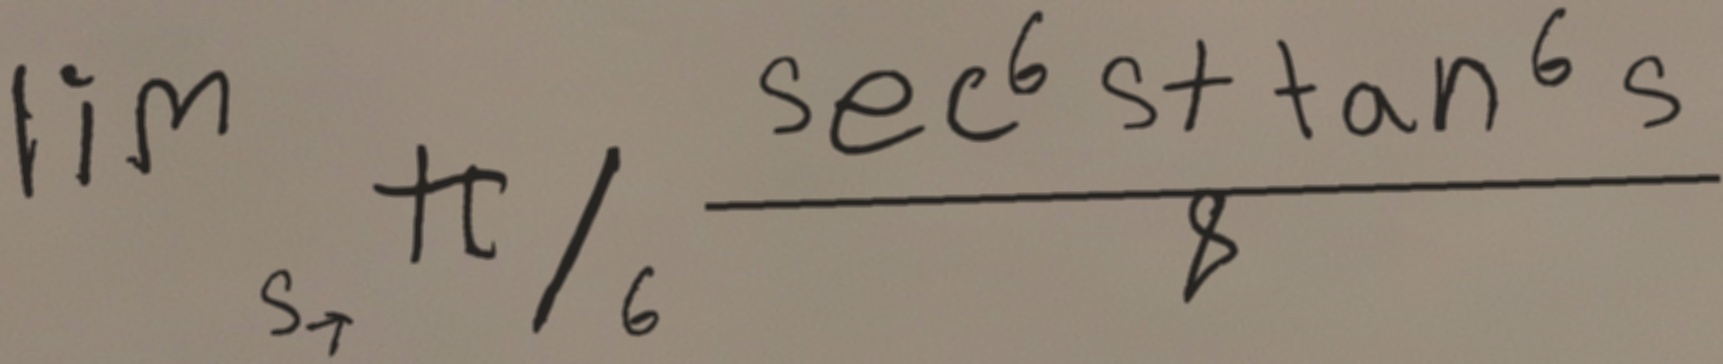 lim s→ π/6 sec⁶ s+tan⁶ s / 8